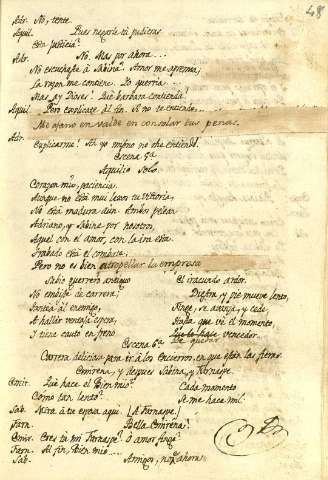 48
Adr. No, tente.
Aquil. Pues negarle tu pudieras
esta justicia?
Adr. No. Mas por ahora...
No escuchaste a Sabina? Amor me apremia;
La razon me contiene. Yo querria...
Mas, ay Dioses! Què barbara contienda!
Aquil. Pero explicate al fin. Si no te entiendo...
Me afano en valde en consolar tus penas.
Adr. Explicarme! Ah yo mismo no me entiendo.
Escena 5ª
Aquilio solo.
Corazon mio, paciencia.
Aunque no està muy lexos tu vitoria,
No està madura aùn. Ambos pelean
Adriano, y Sabina por nosotros,
Aquel con el amor, con la ira esta.
Trabado està el combate.
Pero no es bien atropellar la empresa
Sabio guerrero antiguo
No embiste de carrera;
Incita al enemigo,
A hallar ventaja espera,
Y tiene cauto en freno
El iracundo ardor.
Diestra, y pie mueve lento,
Finge, se avanza, y cede,
Hasta que vè el momento
De quedar vencedor.
Escena 6ª
Carrera deliciosa para ir à los Encierros, en que estàn las fieras
Emirena, y despues Sabina, y Farnaspe.
Emir. Què hace el Bien mio?
Como tan lento?
Cada momento
Se me hace mil.
Sab. Mira à tu esposa aqui. [A Farnaspe]
Farn. Bella Emirena!
Emir. Eres tu mi Farnaspe? O amor finge?
Farn. Al fin, Bien mio....
Sab. Amigos, no es ahora